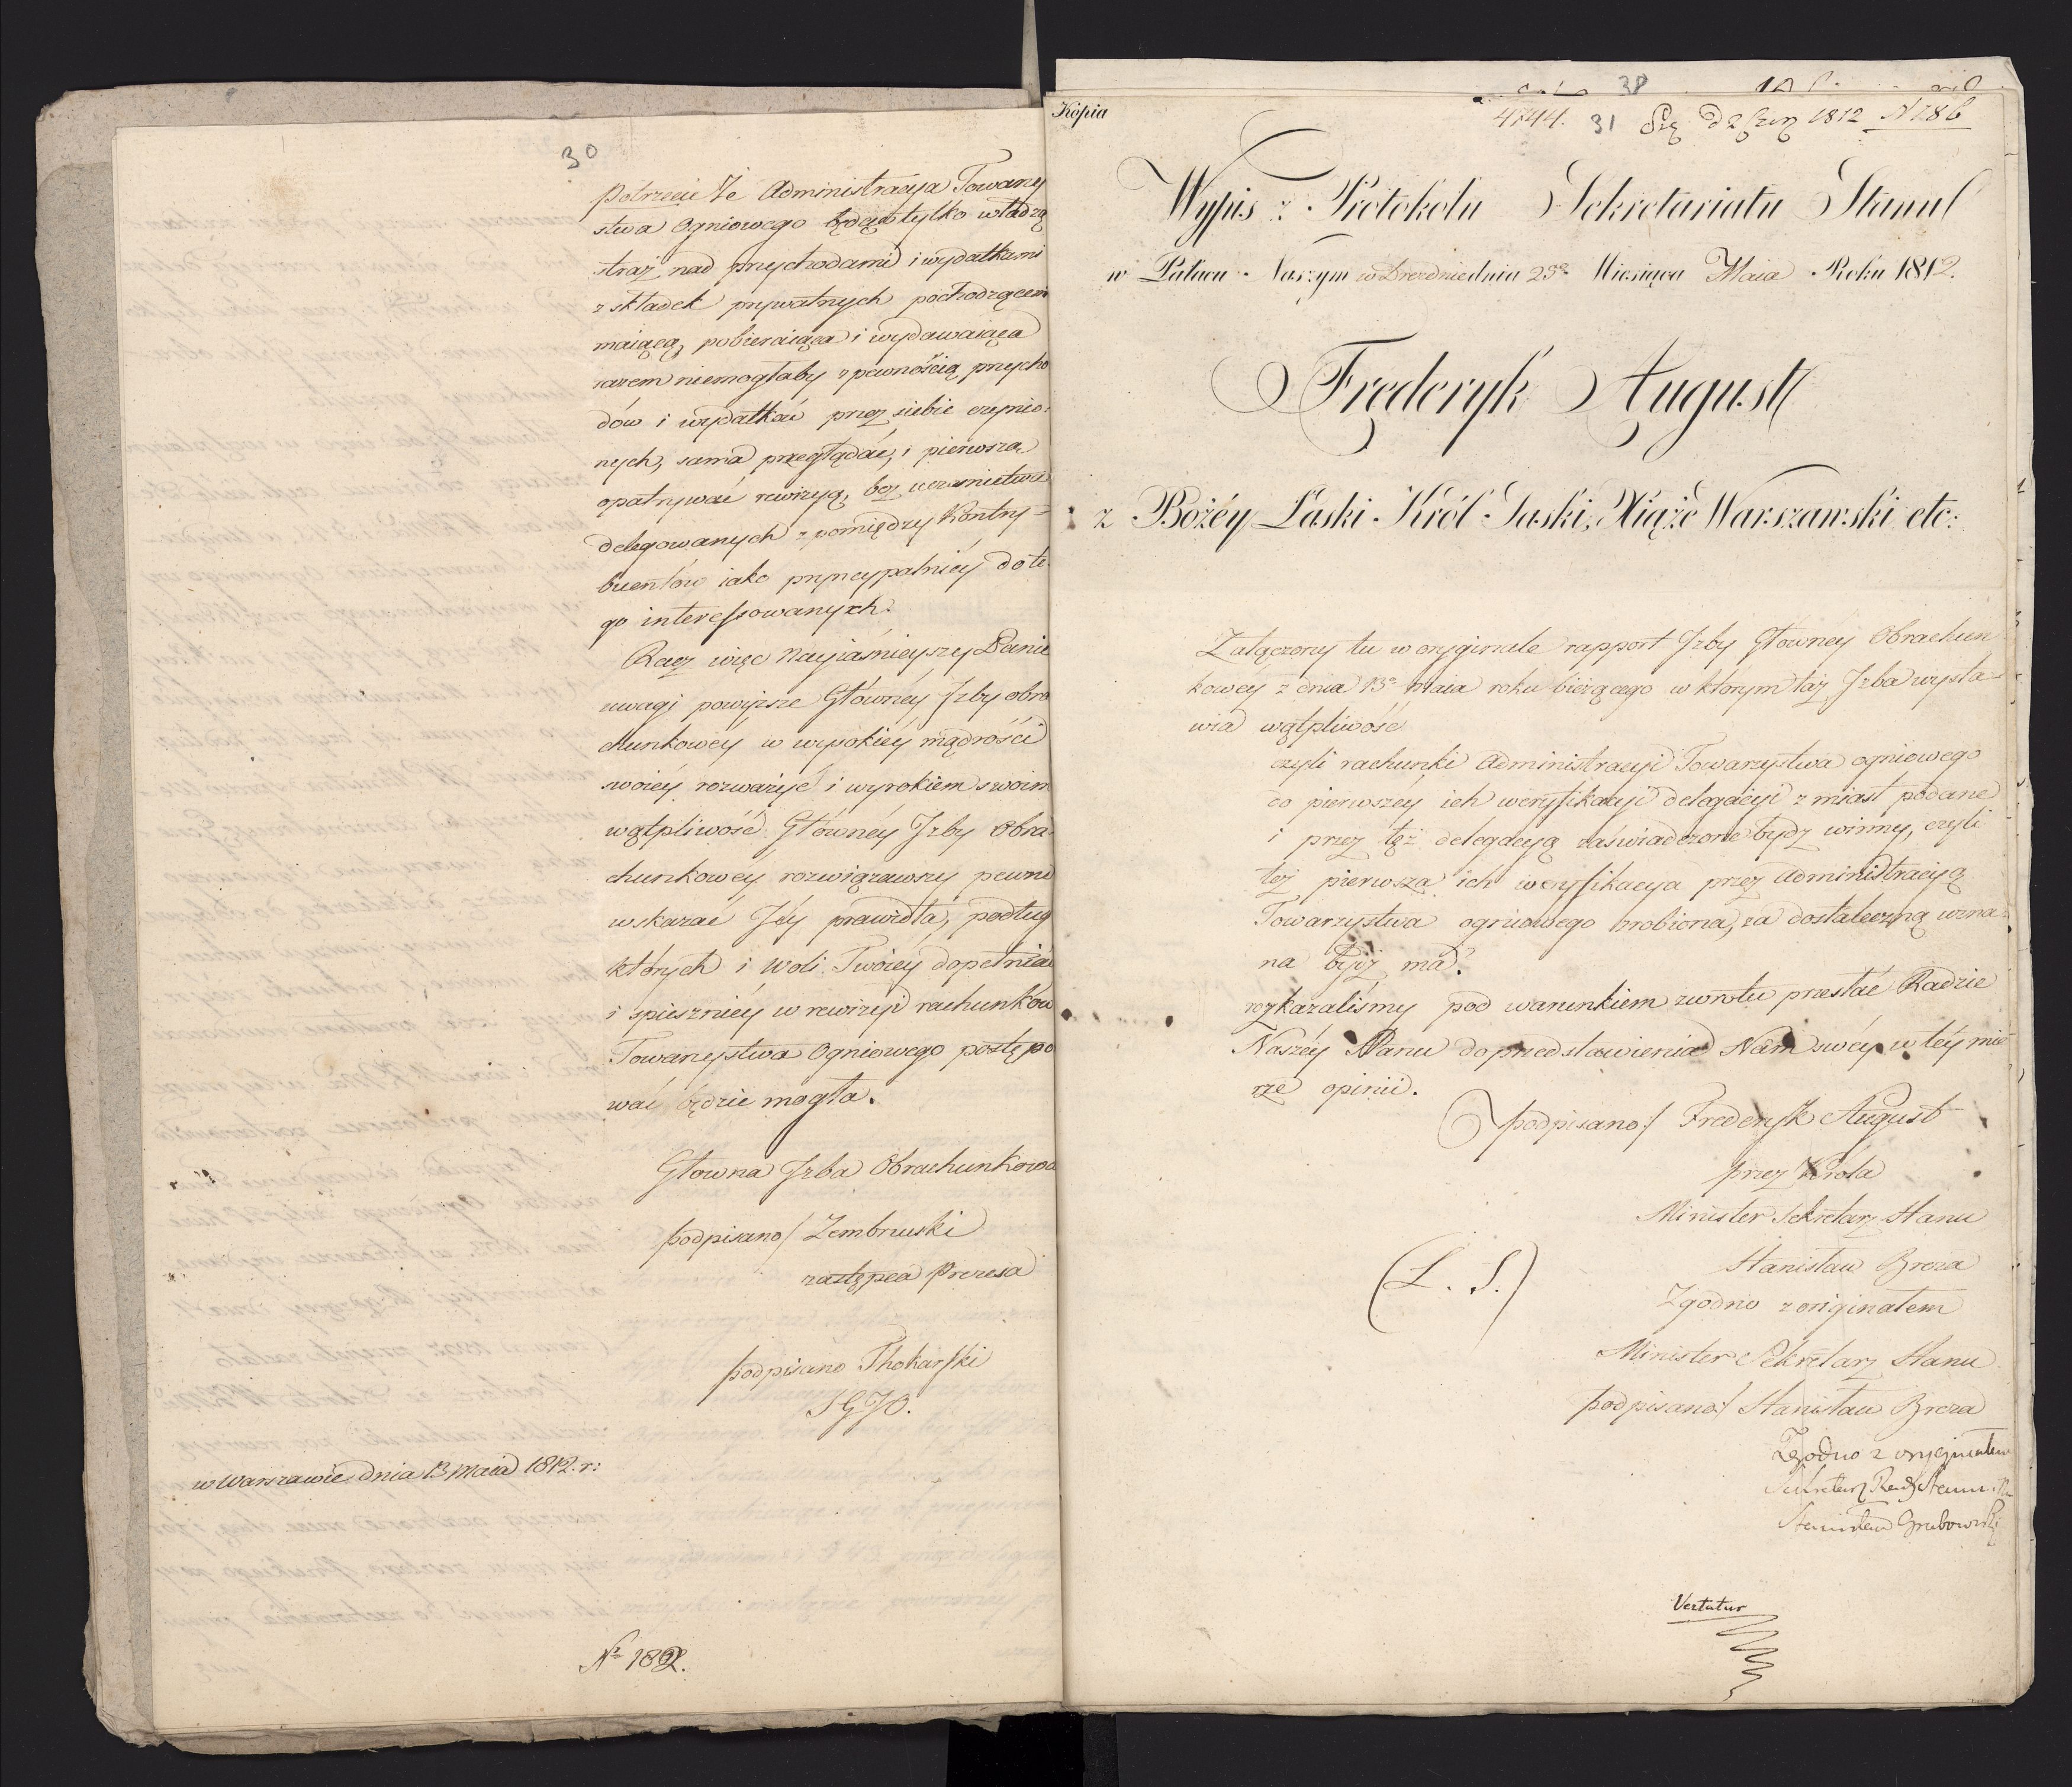 30
potrzecie że Administracya Towarzy
stwa Ogniowego będąc tylko władzą
straż nad przychodami i wydatkami
z składek prywatnych pochodzącem
maiącą, pobieraiąca i wydawaiąca
razem niemogłaby z pewnością przycho
dów i wydatków przez siebie czynio-
nych, sama przeglądać, i pierwszą
opatrywać rewizyą, bez uczesnictwa
delegowanych z pomiędzy Kontry-
buentów iako pryncypalniéy do te
go interessowanych.
Racz więc Nayiaśnieyszy Panie
uwagi powyższe Głównéy Jzby obra
chunkowéy w wysokiéy mądrości
swoiéy rozważyć i wyrokiem swoim
wątpliwość Głównéy Jzby Obra
chunkowéy rozwiązawszy pewne
wskazać Jéy prawidła, podług
których i woli Twoiéy dopełniać
i spieszniéy w rewizyi rachunków
Towarzystwa Ogniowego postępo
wać będzie mogła.
Głowna Jzba Obrachunkowa
podpisano/ Zembrzuski
zastępca Prezesa
podpisano Thokarski
S G J O.
w Warszawie dnia 13 Maia 1812. r:
Nr 1892.
Kopia
38
4744. 31 1812 N 186
Wypis z Protokołu Sekretariatu Stanu
w Pałacu Naszym w Dreznie dnia 23o Miesiąca Maia Roku 1812.
Frederyk August
z Bożéy Łaski Król Saski, Xiążę Warszawski etc:
Załączony tu w oryginale rapport Jzby Głowney Obrachun
kowey z dnia 13o Maia roku bieżącego w którym taż Jzba wysta-
wia wątpliwość
czyli rachunki Administracyi Towarzystwa ogniowego
do pierwszéy ich weryfikacyi delegacyi z miast podane
i przez też delegacyą zaświadczone bydz winny, czyli
też pierwsza ich weryfikacya przez Administracyą
Towarzystwa ogniowego zrobiona, za dostateczną uzna-
na bydz ma?
rozkazaliśmy pod warunkiem zwrotu przesłać Radzie
Naszéy Stanu do przedstawienia Nam swéy w téy mie
rze opinii.
podpisano:/ Frederyk August
przez Króla
Minister Sekretarz Stanu
Stanisław Breza
(L. S.)
Zgodno z originałem
Minister Sekretarz Stanu
podpisano:/ Stanisław Breza
Zgodno z oryginałem
Sekretarz Rady Stanu
Stanisław Grabowski
Vertatur